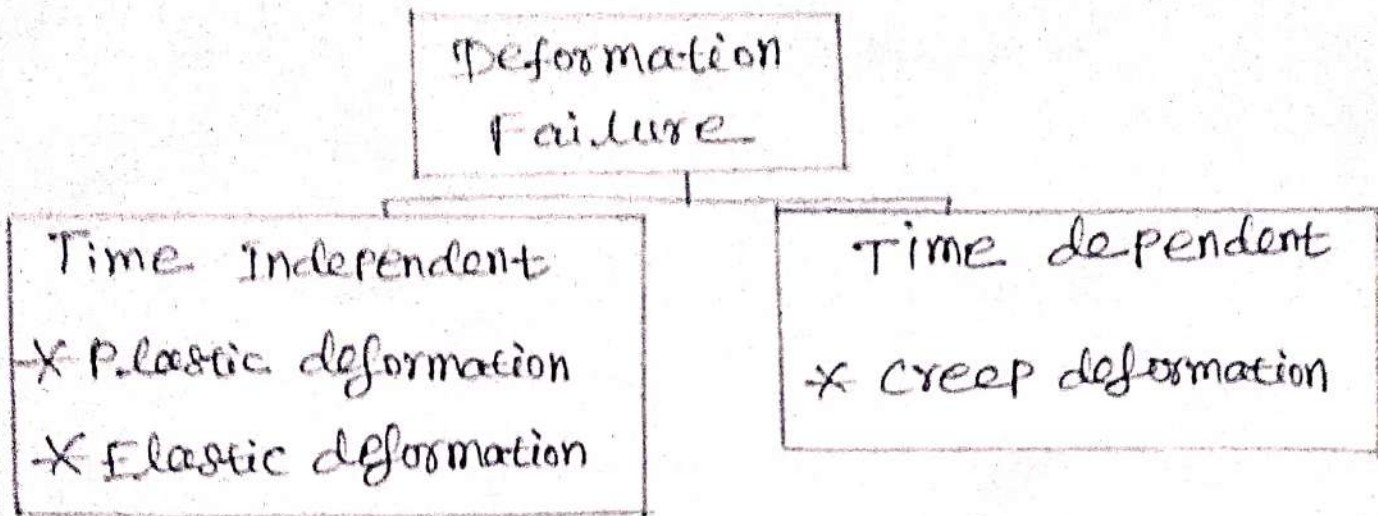 Deformation
Failure
Time Independent
* Plastic deformation
* Elastic deformation
Time dependent
* Creep deformation